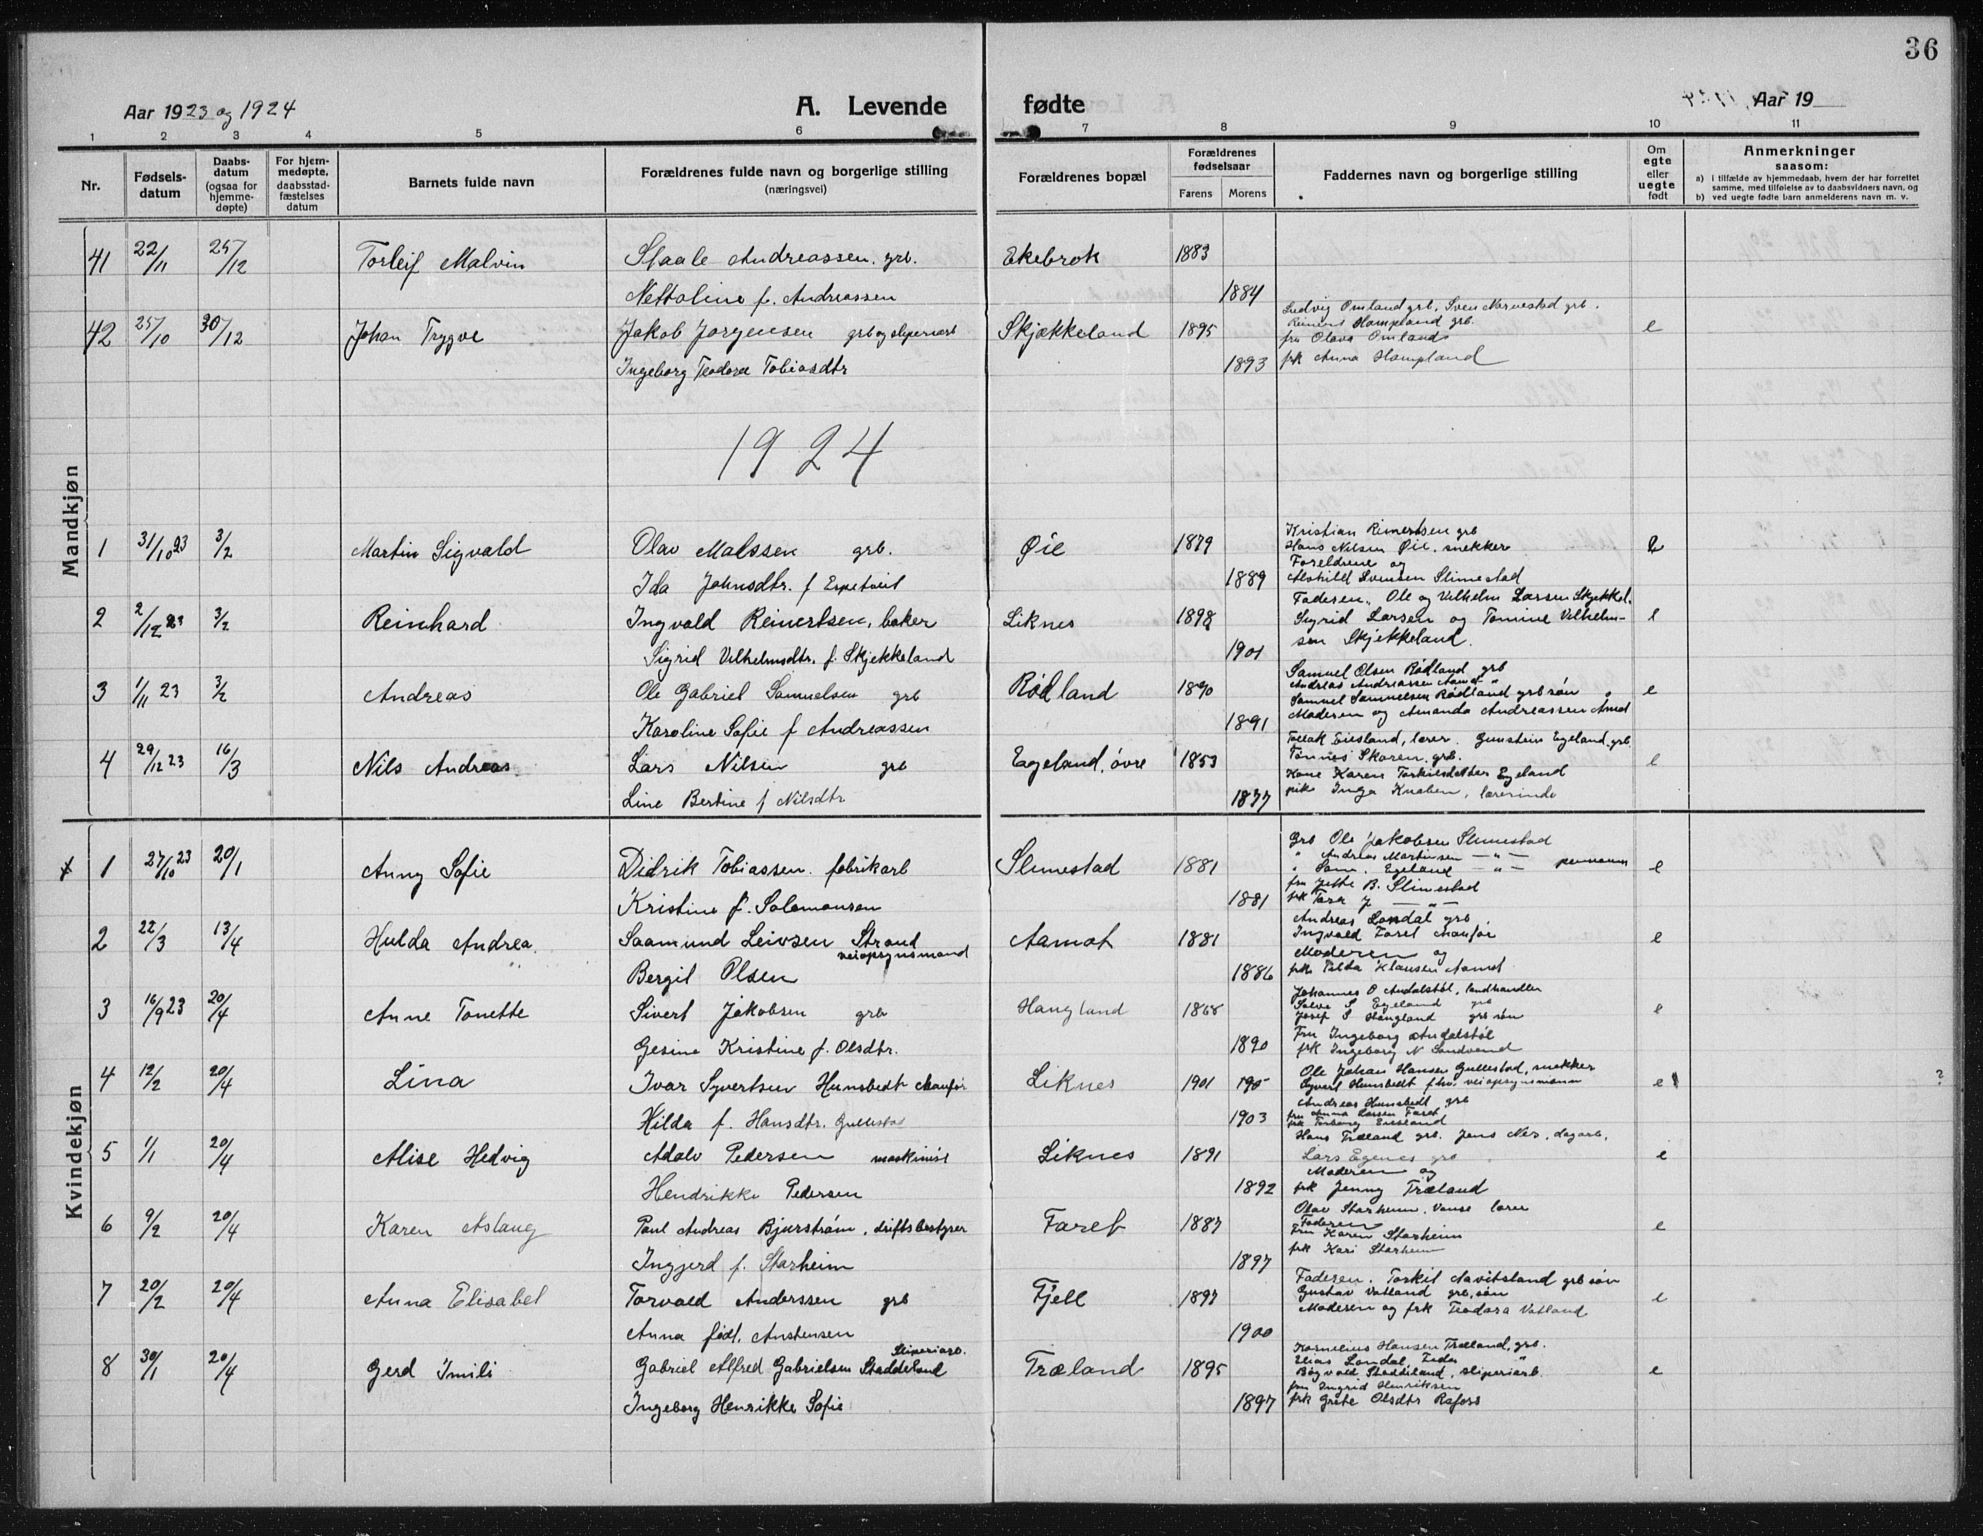 36
Aar 1923 og 1924 A. Levende fødte Aar 19
1 2 3 4 5 6 7 8 9 10 11
Nr. Fødsels-datum Daabs-datum (ogsaa for hjemme-døpte) For hjem-medøpte, daabsstad-fæstelses datum Barnets fulde navn Forældrenes fulde navn og borgerlige stilling (næringsvei) Forældrenes bopæl Forældrenes fødselsaar Farens Morens Faddernes navn og borgerlige stilling Om egte eller uegte født Anmerkninger saasom:
a) i tilfælde av hjemmedaab, hvem der har forrettet samme, med tilføielse av to daabsvidners navn, og
b) ved uegte fødte barn anmelderens navn m. v.
Mandkjøn
41 22/11 25/12 Torleif Malvin Staale Andreassen. grb. Ekebrok 1883
Nettoline f. Andreassen 1884
Ludvig Omland grb. Sven Narvestad grb.
42 25/10 30/12 Johan Trygve Jakob Jørgensen grb og sliperiarb Skjækkeland 1895 Hompland grb. e
fru Olava Omland
Ingeborg Teodora Tobiasdtr 1893 frk Anna Hompland
1924
Kristian Reinertsen grb
1 31/10 23 3/2 Martin Sigvald Olav Malssen grb. Øie 1879 Hans Nilsen Øie, snekker e
Foreldrene og
Ida Johnsdtr. f Espetveit 1889 Alshild Svensen Slimestad
Faderen, Ole og Vilhelm Larsen Skjekkel.
2 2/12 23 3/2 Reinhard Ingvald Reinertsen, baker Liknes 1898 Sigrid Larsen og Tomine Vilhelm- e
Sigrid Vilhelmsdtr. f. Skjekkeland 1901 sen Skjekkeland.
Samuel Olsen Rødland grb
3 1/11 23 3/2 Andreas Ole Gabriel Samuelsen grb Rødland 1890 Andreas Andreassen Aamot "
Samuel Samuelsen Rødland grb søn e
Karoline Sofie f Andreassen 1891 Moderen og Amanda Andreassen Aamot
Eiesland, lærer. Gunstein Egeland, grb.
4 29/12 23 16/3 Nils Andreas. Lars Nilsen grb Egeland, øvre 1853 Tønnes Skoren, grb. e
Kone Karen Torkildsdatter Egeland
Line Bertine f Nilsdtr 1877 pike Inga Knaben, lærerinde
Kvindekjøn
Grb Ole Jakobsen Slimestad
1 27/10 23 20/1 Anny Sofie Didrik Tobiassen. fabrikarb Slimestad 1881 " Andreas Martinsen — " — e
" Sam. Egeland — " —
fru Jette B. Slimestad
Kristine f. Solomonsen 1881 frk Tora J — " —
Andreas Londal grb.
2 22/3 13/4 Hulda Andrea. Saamund Leivsen Strand veiopsynsmand Aamot 1881 Ingvald Faret chaufør e
Moderen og
Bergit Olsen 1886 frk Klausen Aamot
Johannes O Andalstøl, landhandler
3 16/9 23 20/4 Anne Tonette Sivert Jakobsen grb Haugland 1868 Salve S Egeland grb e
Josef S Haugland grb søn
Fru Ingeborg Andalstøl
Gesine Kristine f. Olsdtr. 1890 frk Ingeborg N Sandvand
Ole Johan Hansen Gullestad, snekker
4 12/2 20/4 Lina Ivar Syvertsen Hunsbedt chaufør Liknes 1901 Syvert Hunsbedt fhv. veiopsynsmann e ?
Andreas Hunsbedt grb
fru Anna Larsen Faret
Hilda f. Hansdtr. Gullestad 1903 frk Torborg Eiesland
Hans Træland grb. Jens Nes, dagarb.
5 1/1 20/4 Alise Hedvig Adolv Pedersen maskinist Liknes 1891 Lars Egenes grb e
Moderen og
Hendrikke Pedersen 1892 frk Jenny Træland
Olav Starheim, Vanse lærer
6 9/2 20/4 Karen Aslaug Paul Andreas Bjurstrøm, driftsbestyrer Faret 1887 Faderen e
Fru Karen Starheim
Ingjerd f. Starheim 1897 frk Kari Starheim
Faderen. Torkil Aavitsland grb søn
7 20/2 20/4 Anna Elisabet Torvald Anderssen grb Fjell 1897 Gustav Vatland grb, søn e
Moderen og frk Teodora Vatland
Anna født. Anstensen 1900
Kornelius Hansen Træland, grb.
8 30/1 20/4 Gerd Imili Gabriel Alfred Gabrielsen Staddeland Sliperiarb. Træland 1895 Elias Londal, Feda e
Bøgvald Staddeland, sliperiarb.
fru Ingrid Henriksen
Ingeborg Henrikke Sofie 1897 frk Grete Olsdtr Rafoss